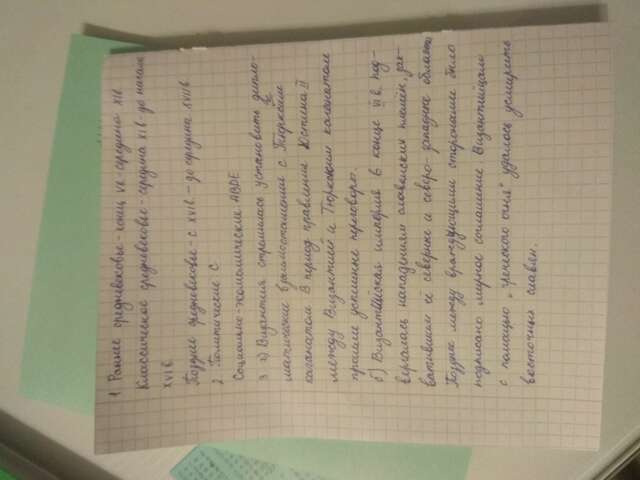 1 Раннее средневековье - конец Vв - середина XIв
Классическое средневековье - середина XIв до начала
XVIв
Позднее средневековье - с XVIв - до середина XVIIв
2 Политические C
Социально-экономические ABDE
3 а) Византия стремилась установить дипло-
матические взаимоотношения с Тюркским
каганатом. В период правления Юстина II
между Византией и Тюркским каганатом
прошли успешные переговоры.
б) Византийская империя в конце VIв. под-
вергалась нападениям славянских племён, зах-
вативших её северные и северо-западные области
Позднее между враждующими сторонами было
подписано мирное соглашение Византийцам
с помощью "греческого огня" удалось усмирить
восточных славян.